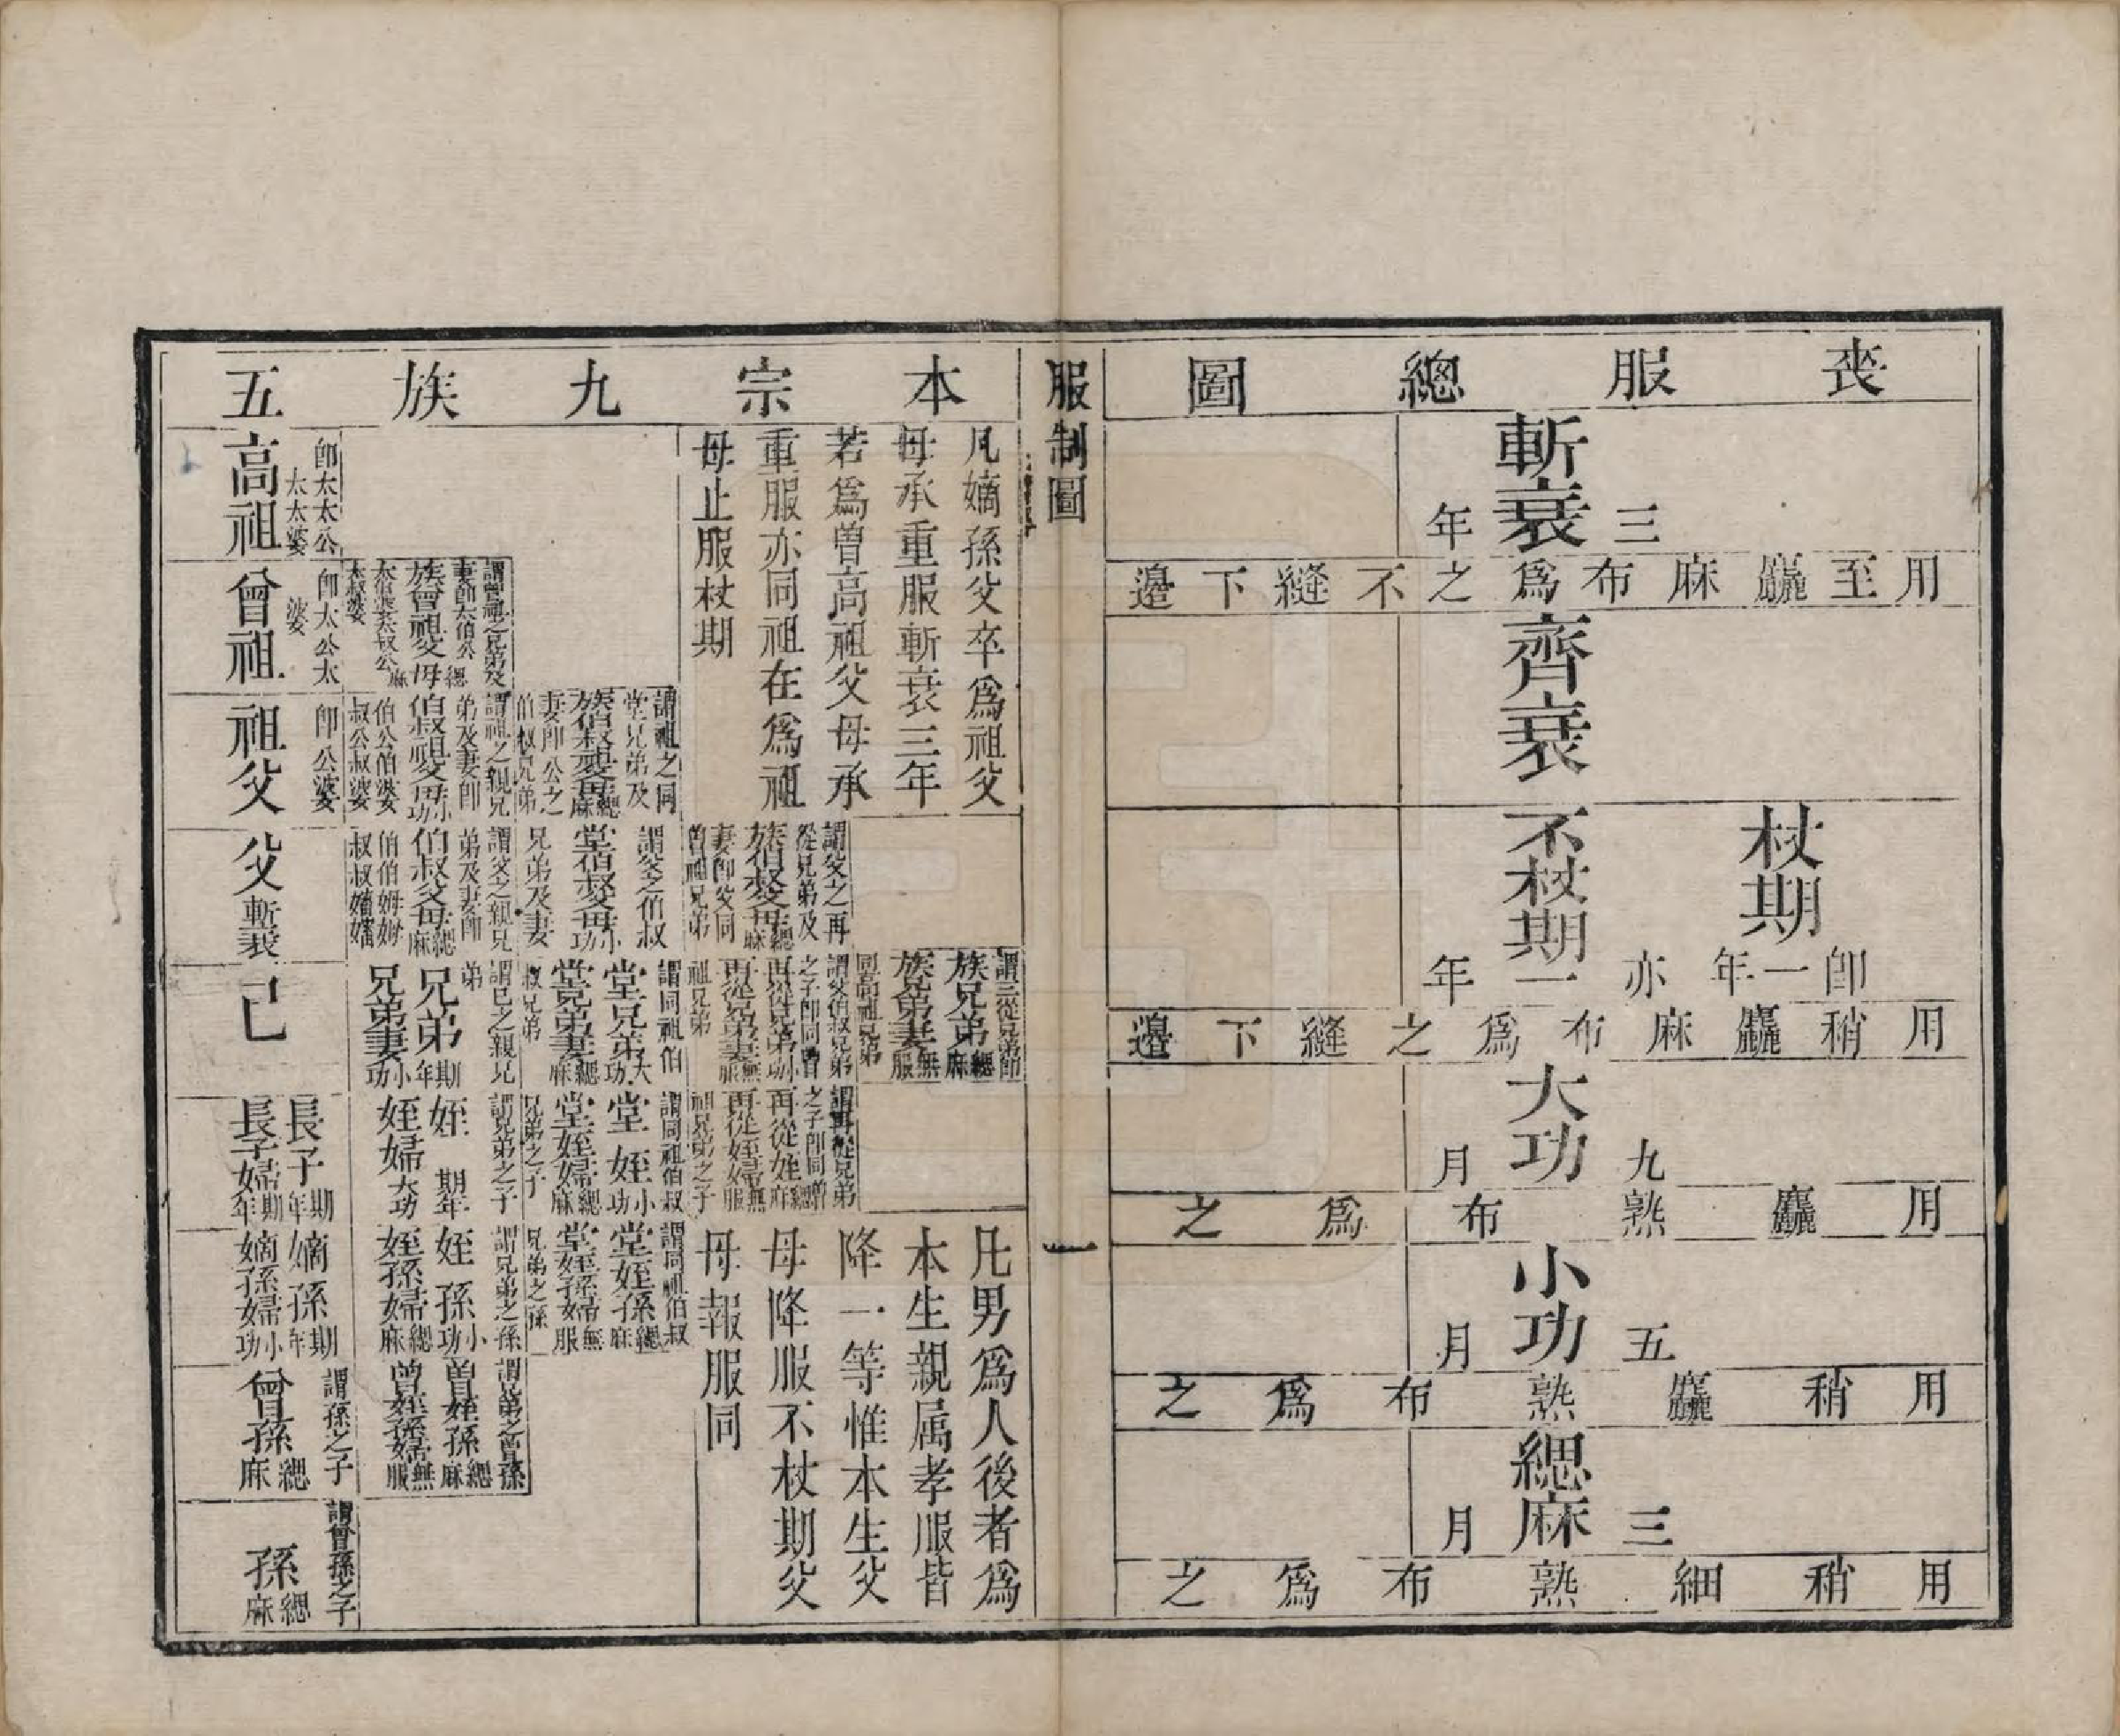 喪服總圖
斬衰
三年
用至麤麻布為之不縫下邊
齊衰
杖期
即一年
不杖期
亦一年
用稍麤麻布為之縫下邊
大功
九月
用麤熟布為之
小功
五月
用稍麤熟布為之
緦麻
三月
用稍細熟布為之
服制圖
一
本宗九族五
凡嫡孫父卒爲祖父
母承重服斬衰三年
若爲曾高祖父母承
重服亦同祖在爲祖
母止服杖期
謂父之再
從兄弟及
族伯叔父母緦麻
妻即父同
曾祖兄弟
謂三從兄弟即
族兄弟緦麻
族兄弟妻無服
同高祖兄弟
謂父伯叔兄弟
之子即同曾
再從兄弟小功
再從兄弟妻無服
祖兄弟
謂再從兄弟
之子即同曾
再從姪緦麻
再從姪婦無服
祖兄弟之子
凡男爲人後者爲
本生親属孝服皆
降一等惟本生父
母降服不杖期父
母報服同
謂祖之同
堂兄弟及
族伯叔祖父母緦麻
妻即公之
伯叔兄弟
謂父之伯叔
堂伯叔父母小功
兄弟及妻
謂同祖伯
堂兄弟大功
堂兄弟妻緦麻
叔兄弟
謂同祖伯叔
堂姪小功
堂姪婦緦麻
兄弟之子
謂同祖伯叔
堂姪孫緦麻
堂姪孫婦無服
兄弟之孫
謂曾祖之兄弟及
妻即太伯公
族曾祖父母緦麻
太伯婆太叔公
太叔婆
謂祖之親兄
弟及妻即
伯叔祖父母小功
伯公伯婆
叔公叔婆
謂父之親兄
弟及妻即
伯叔父母緦麻
伯伯姆姆
叔叔嬸嬸
謂己之親兄
弟
兄弟期年
兄弟妻小功
謂兄弟之子
姪期年
姪婦大功
謂兄弟之孫
姪孫小功
姪孫婦緦麻
謂兄弟之曾孫
曾姪孫緦麻
曾姪孫婦無服
即太太公
太太婆
高祖
即太公太
婆
曾祖
即公婆
祖父
父斬衰
己
長子期年
長子婦期年
嫡孫期年
嫡孫婦小功
謂孫之子
曾孫緦麻
謂曾孫之子
孫緦麻